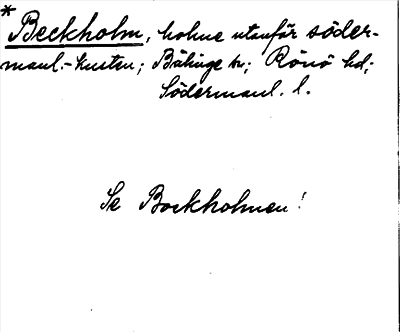 * Beckholm, holme utanför söder-
manl.-kusten; Bälinge sn; Rönö hd;
Södermanl. l.
Se Bockholmen!